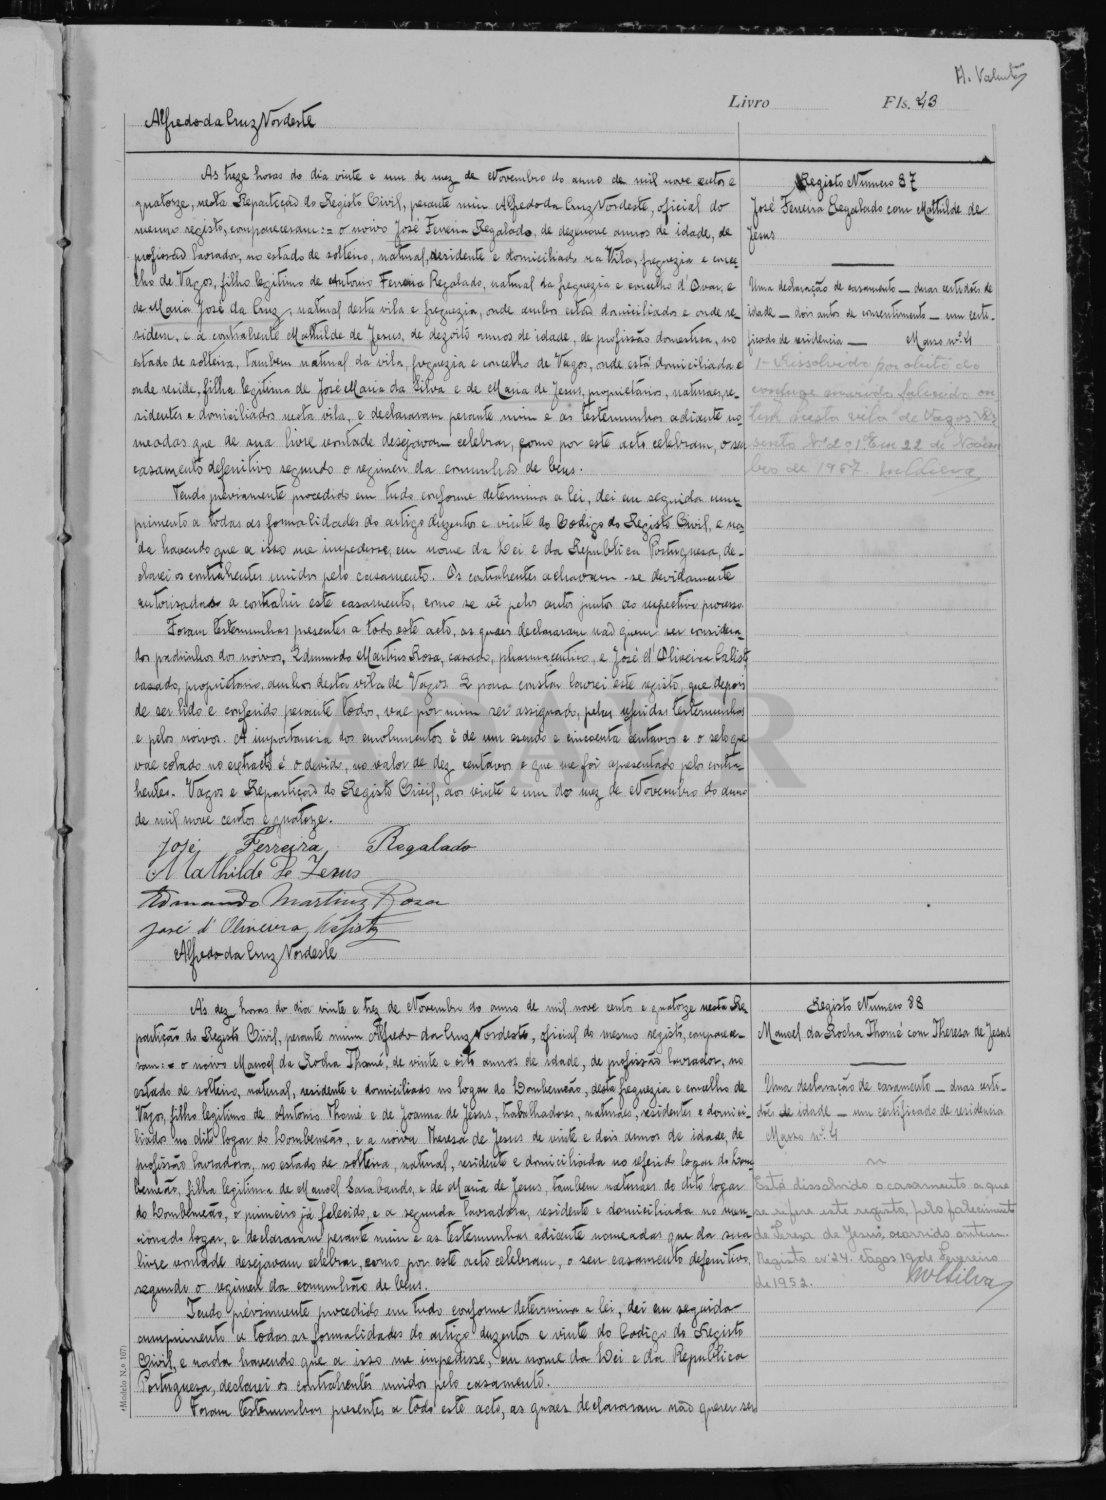 A. Valente
Livro Fls. 43
Alfredo da Cruz Nordeste
As treze horas do dia vinte e um do mez de Novembro do anno de mil nove centos e
quatorze, nesta Repartição do Registo Civil, perante mim Alfredo da Cruz Nordeste, oficial do
mesmo registo, compareceram:= o noivo José Ferreira Regalado, de dezenove annos de idade, de
profissão lavrador, no estado de solteiro, natural, residente e domiciliado na Vila, freguezia e conce-
lho de Vagos, filho legitimo de Antonio Ferreira Regalado, natural da freguezia e concelho d'Ovar, e
de Maria José da Cruz, natural desta vila e freguezia, onde ambos estão domiciliados e onde re-
sidem, e a contrahente Mathilde de Jesus, de dezoito annos de idade, de profissão domestica, no
estado de solteira, tambem natural da vila, freguezia e concelho de Vagos, onde está domiciliada e
onde reside, filha legitima de José Maria da Silva e de Maria de Jesus, proprietarios, naturaes, re-
sidentes e domiciliados nesta vila, e declararam perante mim e as testemunhas adiante no-
meadas que de sua livre vontade desejavam celebrar, como por este acto celebram, o seu
casamento defenitivo segundo o regimen da comunhão de bens.
Tendo préviamente procedido em tudo conforme determina a lei, dei em seguida cum-
primento a todas as formalidades do artigo duzentos e vinte do Codigo do Registo Civil, e na-
da havendo que a isso me impedisse, em nome da Lei e da Republica Portuguesa, de-
clarei os contrahentes unidos pelo casamento. Os contrahentes achavam-se devidamente
autorisados a contrahir este casamento, como se vê pelos autos juntos ao respectivo processo.
Foram testemunhas presentes a todo este acto, as quaes declararam não querer ser considera-
dos padrinhos dos noivos, Edmundo Martins Rosa, casado, pharmaceutico, e José d'Oliveira Calisto
casado, proprietario, ambos desta vila de Vagos. E para constar lavrei este registo, que depois
de ser lido e conferido perante todos, vae por mim ser assignado, pelas referidas testemunhas
e pelos noivos. A importancia dos emolumentos é de um escudo e cincoenta centavos e o selo que
vae colado no extracto é o devido, no valor de dez centavos e que me foi apresentado pelo contra-
hentes. Vagos e Repartição do Registo Civil, aos vinte e um do mez de Novembro do anno
de mil nove centos e quatorze.
José Ferreira Regalado
Mathilde de Jesus
Edmundo Martins Rosa
José d'Oliveira Calisto
Alfredo da Cruz Nordeste
Registo Numero 87
José Ferreira Regalado com Mathilde de
Jesus
Uma declaração de casamento — duas certidões de
idade — dois autos de consentimento — um certi-
ficado de residencia — Masso nº. 4
1- Dissolvido por obito do
conjuge marido falecido on
tem nesta vila de Vagos. As
sento Nº 201. Em 22 de Novem
bro de 1957.
As dez horas do dia vinte e trez de Novembro do anno de mil nove centos e quatorze nesta Re-
partição do Registo Civil, perante mim Alfredo da Cruz Nordeste, oficial do mesmo registo, comparece-
ram:= o noivo Manoel da Rocha Thomé, de vinte e oito annos de idade, de profissão lavrador, no
estado de solteiro, natural, residente e domiciliado no logar do Lombomeão, desta freguezia e concelho de
Vagos, filho legitimo de Antonio Thomé e de Joanna de Jesus, trabalhadores, naturaes, residentes e domici-
liados no dito logar do Lombomeão, e a noiva Theresa de Jesus de vinte e dois annos de idade, de
profissão lavradora, no estado de solteira, natural, residente e domiciliada no referido logar do Lom
bomeão, filha legitima de Manoel Sarabando, e de Maria de Jesus, tambem naturaes do dito logar
do Lombomeão, o primeiro já falecido, e a segunda lavradora, residente e domiciliada no men-
cionado logar, e declararam perante mim e as testemunhas adiante nomeadas que da sua
livre vontade desejavam celebrar, como por este acto celebram, o seu casamento defenitivo,
segundo o regimen da comunhão de bens.
Tendo préviamente procedido em tudo conforme determina a lei, dei em seguida
cumprimento a todas as formalidades do artigo duzentos e vinte do Codigo do Registo
Civil, e nada havendo que a isso me impedisse, em nome da Lei e da Republica
Portuguesa, declarei os contrahentes unidos pelo casamento.
Foram testemunhas presentes a todo este acto, as quaes declararam não querer ser
Registo Numero 88
Manoel da Rocha Thomé com Theresa de Jesus
Uma declaração de casamento — duas certi-
dões de idade — um certificado de residencia
Masso nº. 4
Está dissolvido o casamento a que
se refere este registo, pelo falecimento
de Teresa de Jesus, ocorrido antem.
Registo nº 24. Vagos 19 de Fevereiro
de 1952. Silva
(Modelo N.º 107)